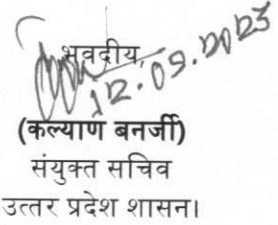 भवदीय,
12.09.2023
(कल्याण बनर्जी)
संयुक्त सचिव
उत्तर प्रदेश शासन।